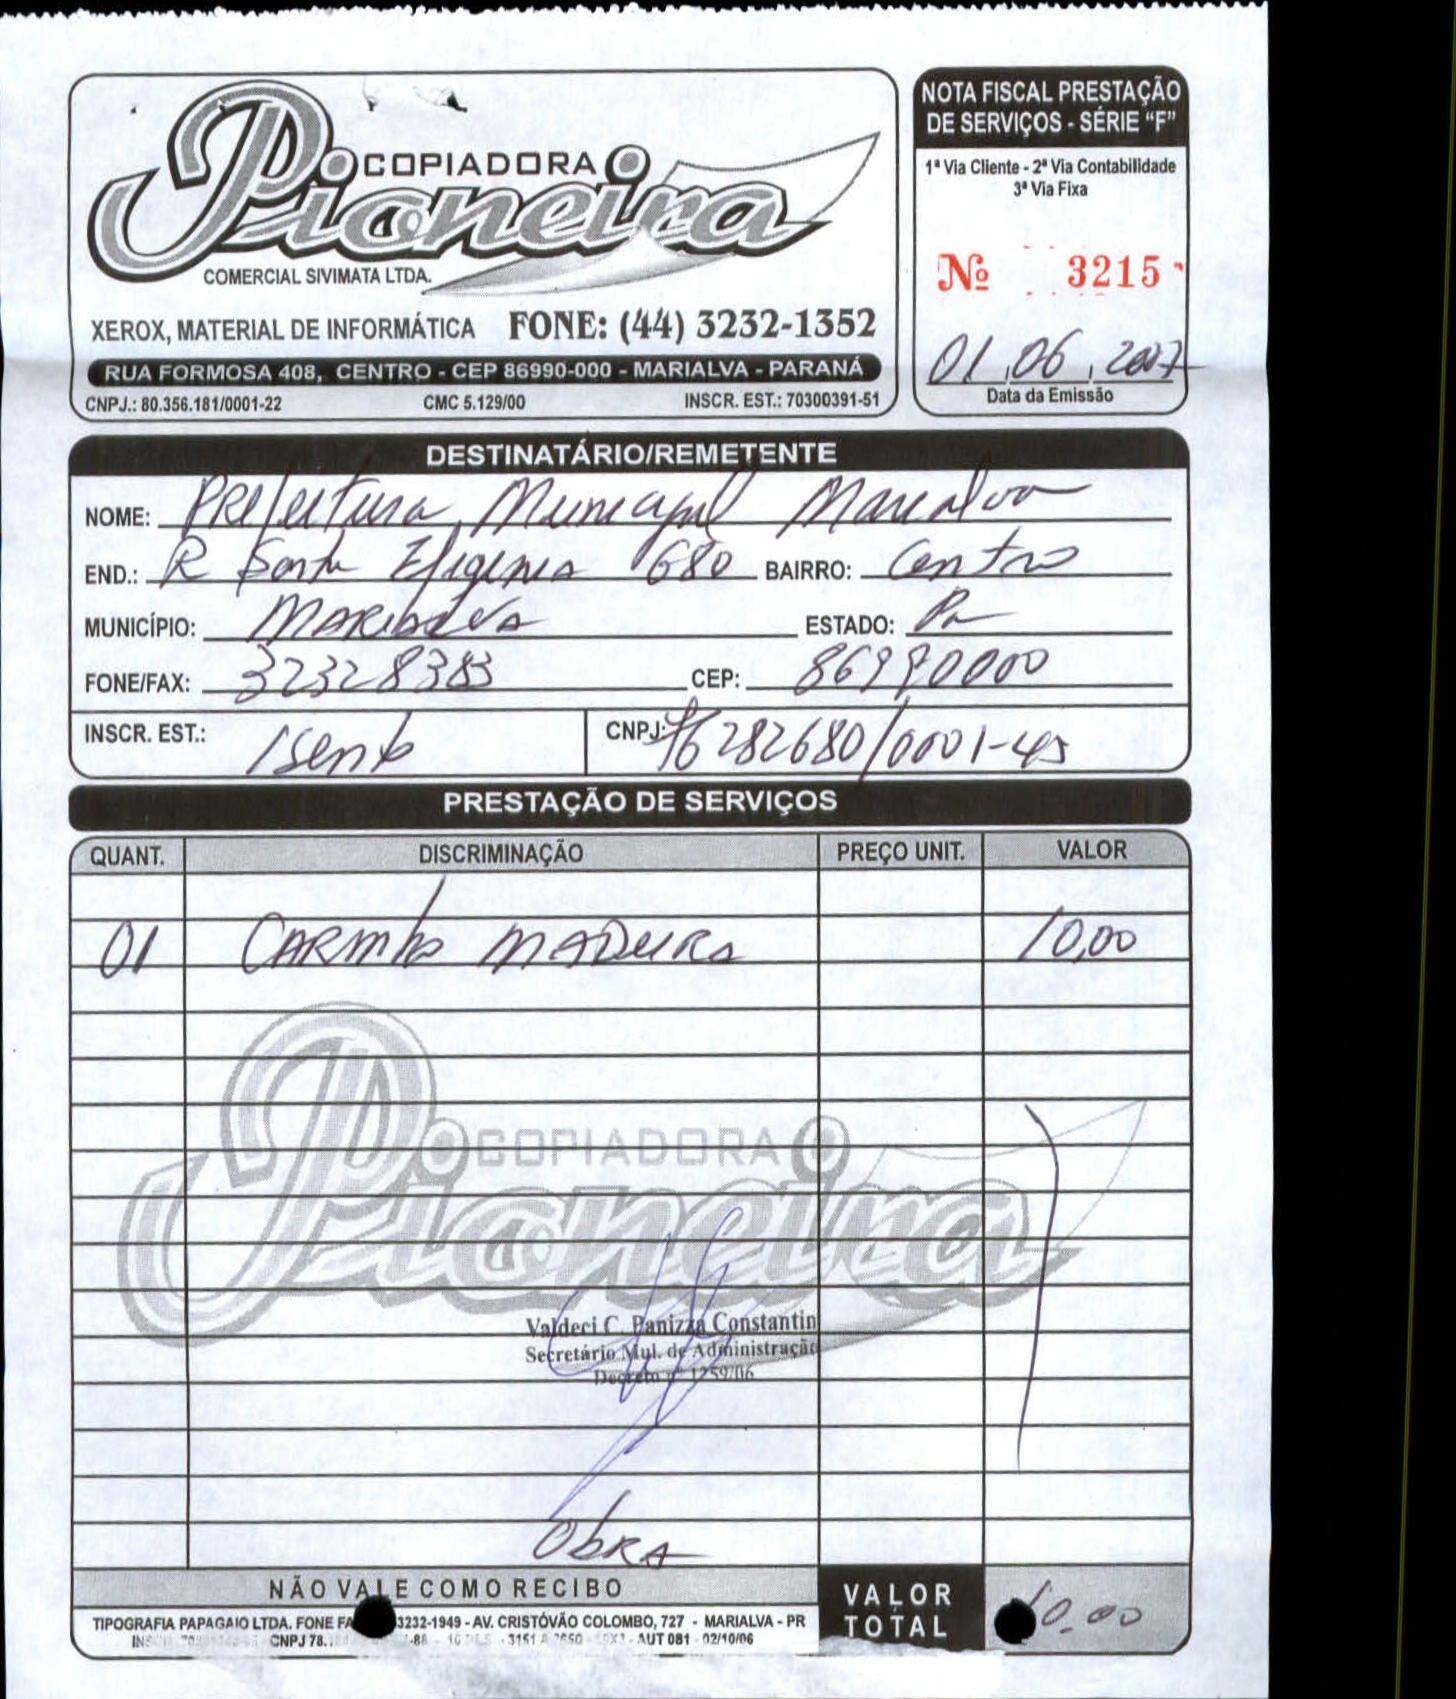 COPIADORA
Pioneira
COMERCIAL SIVIMATA LTDA.
XEROX, MATERIAL DE INFORMÁTICA FONE: (44) 3232-1352
RUA FORMOSA 408, CENTRO - CEP 86990-000 - MARIALVA - PARANÁ
CNPJ.: 80.356.181/0001-22 CMC 5.129/00 INSCR. EST.: 70300391-51
NOTA FISCAL PRESTAÇÃO
DE SERVIÇOS - SÉRIE “F”
1ª Via Cliente - 2ª Via Contabilidade
3ª Via Fixa
Nº 3215
01,06,2007
Data da Emissão
DESTINATÁRIO/REMETENTE
NOME: Prefeitura Municipal Marialva
END.: R Santa Efigenia 680 BAIRRO: Centro
MUNICÍPIO: Marialva ESTADO: Pr
FONE/FAX: 32328383 CEP: 86990000
INSCR. EST.: Isento CNPJ: 76282680/0001-45
PRESTAÇÃO DE SERVIÇOS
QUANT. DISCRIMINAÇÃO PREÇO UNIT. VALOR
01 CARIMBO MADEIRA 10,00
COPIADORA
Pioneira
Valdeci C. Panizza Constantin
Secretário Mul. de Administração
Decreto nº 1259/06
ObRA
NÃO VALE COMO RECIBO
VALOR TOTAL 10.00
TIPOGRAFIA PAPAGAIO LTDA. FONE 3232-1949 - AV. CRISTÓVÃO COLOMBO, 727 - MARIALVA - PR
CNPJ 78. - AUT 081 - 02/10/06